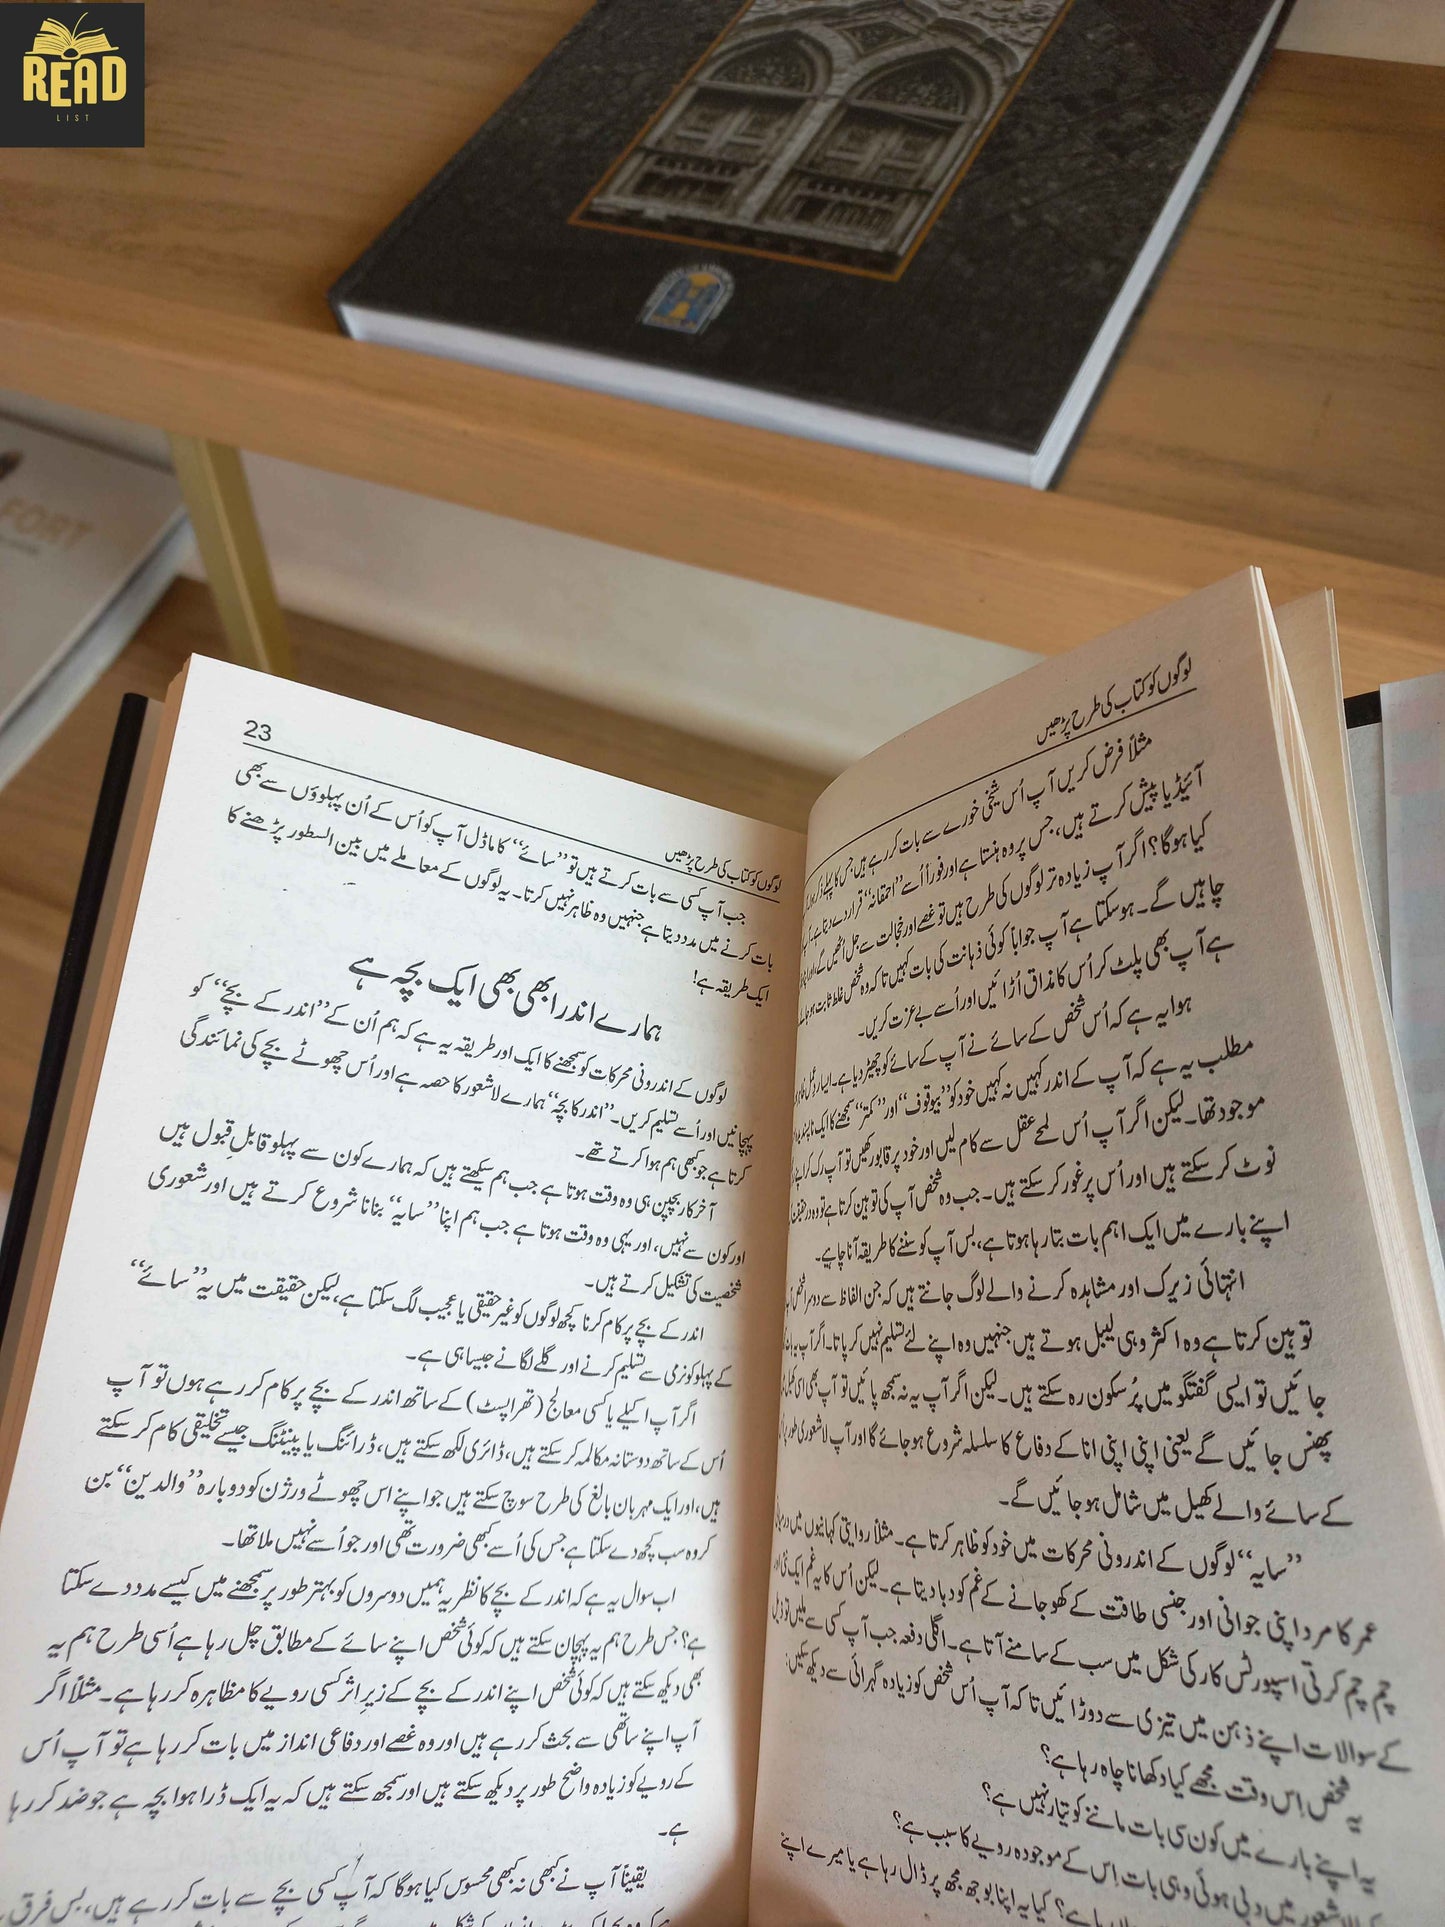 READ
LIST
FORT
لوگوں کو کتاب کی طرح پڑھیں
مثلاً فرض کریں آپ اُس شیخی خورے سے بات کر رہے ہیں جس کا پہلے ذکر
آئیڈیا پیش کرتے ہیں، جس پر وہ ہنستا ہے اور فوراً اُسے ”احمقانہ“ قرار دے دیتا ہے۔
کیا ہوگا؟ اگر آپ زیادہ تر لوگوں کی طرح ہیں تو غصے اور خجالت سے جل اُٹھیں گے
چاہیں گے۔ ہو سکتا ہے آپ جواباً کوئی ذہانت کی بات کہیں تاکہ وہ شخص غلط ثابت ہو جائے
ہے آپ بھی پلٹ کر اُس کا مذاق اُڑائیں اور اُسے بے عزت کریں۔
ہوا یہ ہے کہ اُس شخص کے سائے نے آپ کے سائے کو چھیڑ دیا ہے۔ ایسا ردِعمل
مطلب یہ ہے کہ آپ کے اندر کہیں نہ کہیں خود کو ”بیوقوف“ اور ”کمتر“ سمجھنے کا ایک
موجود تھا۔ لیکن اگر آپ اُس لمحے عقل سے کام لیں اور خود پر قابو رکھیں تو آپ رک کر اپنے
نوٹ کر سکتے ہیں اور اُس پر غور کر سکتے ہیں۔ جب وہ شخص آپ کی توہین کرتا ہے تو وہ در حقیقت
اپنے بارے میں ایک اہم بات بتا رہا ہوتا ہے، بس آپ کو سننے کا طریقہ آنا چاہیے۔
انتہائی زیرک اور مشاہدہ کرنے والے لوگ جانتے ہیں کہ جن الفاظ سے دوسرا شخص
توہین کرتا ہے وہ اکثر وہی لیبل ہوتے ہیں جنہیں وہ اپنے لئے تسلیم نہیں کر پاتا۔ اگر آپ یہ
جائیں تو ایسی گفتگو میں پُرسکون رہ سکتے ہیں۔ لیکن اگر آپ یہ نہ سمجھ پائیں تو آپ بھی اسی کھیل
پھنس جائیں گے یعنی اپنی اپنی انا کے دفاع کا سلسلہ شروع ہو جائے گا اور آپ لاشعوری طور پر
کے سائے والے کھیل میں شامل ہو جائیں گے۔
”سایہ“ لوگوں کے اندرونی محرکات میں خود کو ظاہر کرتا ہے۔ مثلاً روایتی کہانیوں میں
عمر کا مرد اپنی جوانی اور جنسی طاقت کے کھو جانے کے غم کو دبا دیتا ہے۔ لیکن اُس کا یہ غم ایک نئی
چم چم کرتی اسپورٹس کار کی شکل میں سب کے سامنے آتا ہے۔ اگلی دفعہ جب آپ کسی سے ملیں تو
کے سوالات اپنے ذہن میں تیزی سے دوڑائیں تاکہ آپ اُس شخص کو زیادہ گہرائی سے دیکھ سکیں:
یہ شخص اِس وقت مجھے کیا دکھانا چاہ رہا ہے؟
یہ اپنے بارے میں کون سی بات ماننے کو تیار نہیں ہے؟
لاشعور میں دبی ہوئی وہی بات اِس کے موجودہ رویے کا سبب ہے؟
کیا یہ اپنا بوجھ مجھ پر ڈال رہا ہے یا میرے اپنے
23
لوگوں کو کتاب کی طرح پڑھیں
جب آپ کسی سے بات کرتے ہیں تو ”سائے“ کا ماڈل آپ کو اُس کے اُن پہلوؤں سے بھی
بات کرنے میں مدد دیتا ہے جنہیں وہ ظاہر نہیں کرتا۔ یہ لوگوں کے معاملے میں بین السطور پڑھنے کا
ایک طریقہ ہے!
ہمارے اندر ابھی بھی ایک بچہ ہے
لوگوں کے اندرونی محرکات کو سمجھنے کا ایک اور طریقہ یہ ہے کہ ہم اُن کے ”اندر کے بچے“ کو
پہچانیں اور اُسے تسلیم کریں۔ ”اندر کا بچہ“ ہمارے لاشعور کا حصہ ہے اور اُس چھوٹے بچے کی نمائندگی
کرتا ہے جو کبھی ہم ہوا کرتے تھے۔
آخر کار بچپن ہی وہ وقت ہوتا ہے جب ہم سیکھتے ہیں کہ ہمارے کون سے پہلو قابلِ قبول ہیں
اور کون سے نہیں، اور یہی وہ وقت ہوتا ہے جب ہم اپنا ”سایہ“ بنانا شروع کرتے ہیں اور شعوری
شخصیت کی تشکیل کرتے ہیں۔
اندر کے بچے پر کام کرنا کچھ لوگوں کو غیر حقیقی یا عجیب لگ سکتا ہے، لیکن حقیقت میں یہ ”سائے“
کے پہلو کو نرمی سے تسلیم کرنے اور گلے لگانے جیسا ہی ہے۔
اگر آپ اکیلے یا کسی معالج (تھراپسٹ) کے ساتھ اندر کے بچے پر کام کر رہے ہوں تو آپ
اُس کے ساتھ دوستانہ مکالمہ کر سکتے ہیں، ڈائری لکھ سکتے ہیں، ڈرائنگ یا پینٹنگ جیسے تخلیقی کام کر سکتے
ہیں، اور ایک مہربان بالغ کی طرح سوچ سکتے ہیں جو اپنے اس چھوٹے ورژن کو دوبارہ ”والدین“ بن
کر وہ سب کچھ دے سکتا ہے جس کی اُسے کبھی ضرورت تھی اور جو اُسے نہیں ملا تھا۔
اب سوال یہ ہے کہ اندر کے بچے کا نظریہ ہمیں دوسروں کو بہتر طور پر سمجھنے میں کیسے مدد دے سکتا
ہے؟ جس طرح ہم یہ پہچان سکتے ہیں کہ کوئی شخص اپنے سائے کے مطابق چل رہا ہے اُسی طرح ہم یہ
بھی دیکھ سکتے ہیں کہ کوئی شخص اپنے اندر کے بچے کے زیرِ اثر کسی رویے کا مظاہرہ کر رہا ہے۔ مثلاً اگر
آپ اپنے ساتھی سے بحث کر رہے ہیں اور وہ غصے اور دفاعی انداز میں بات کر رہا ہے تو آپ اُس
کے رویے کو زیادہ واضح طور پر دیکھ سکتے ہیں اور سمجھ سکتے ہیں کہ یہ ایک ڈرا ہوا بچہ ہے جو ضد کر رہا
ہے۔
یقیناً آپ نے کبھی نہ کبھی محسوس کیا ہوگا کہ آپ کسی بچے سے بات کر رہے ہیں، بس فرق